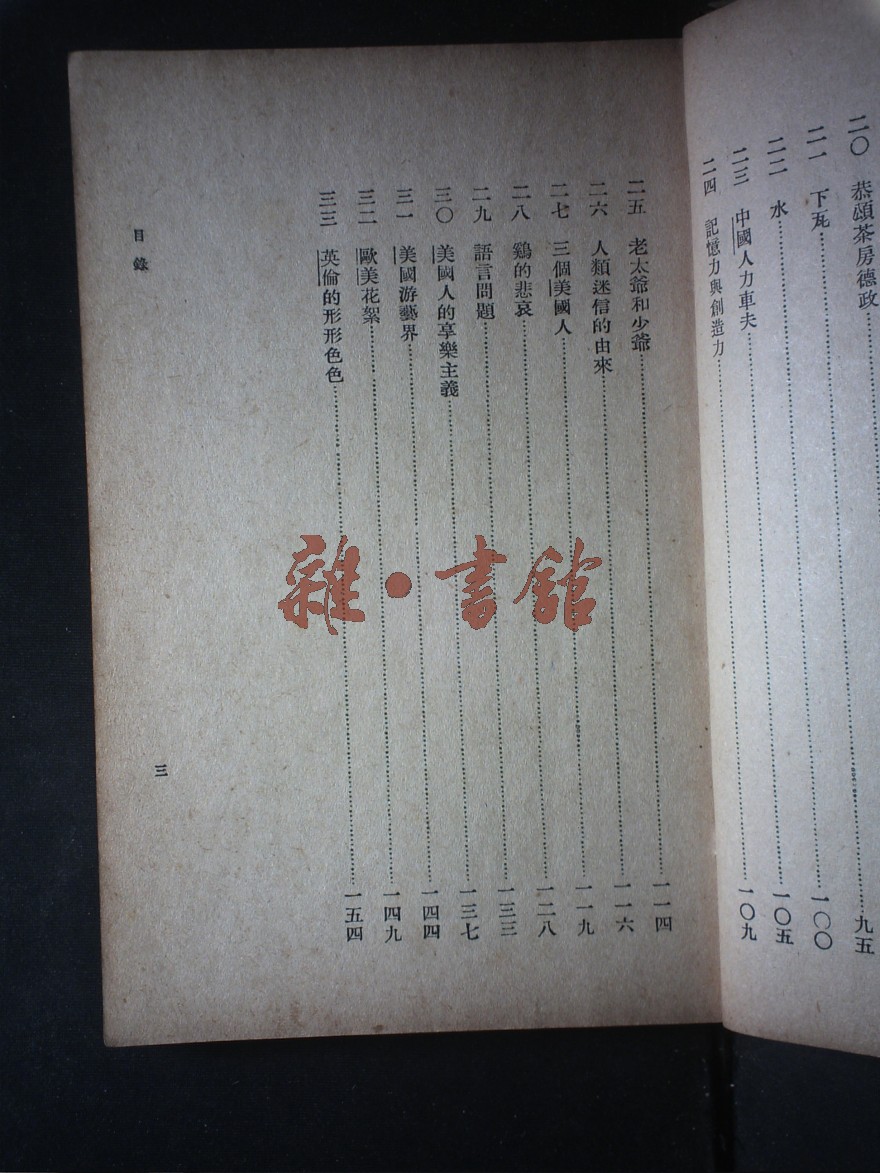 二〇 恭頌茶房德政……九五
二一 下瓦……一〇〇
二二 水……一〇五
二三 中國人力車夫……一〇九
二四 記憶力與創造力……
二五 老太爺和少爺……一一四
二六 人類迷信的由來……一一六
二七 三個美國人……一一九
二八 鷄的悲哀……一二八
二九 語言問題……一三三
三〇 美國人的享樂主義……一三七
三一 美國游藝界……一四四
三二 歐美花絮……一四九
三三 英倫的形形色色……一五四
目錄
三
雜·書館